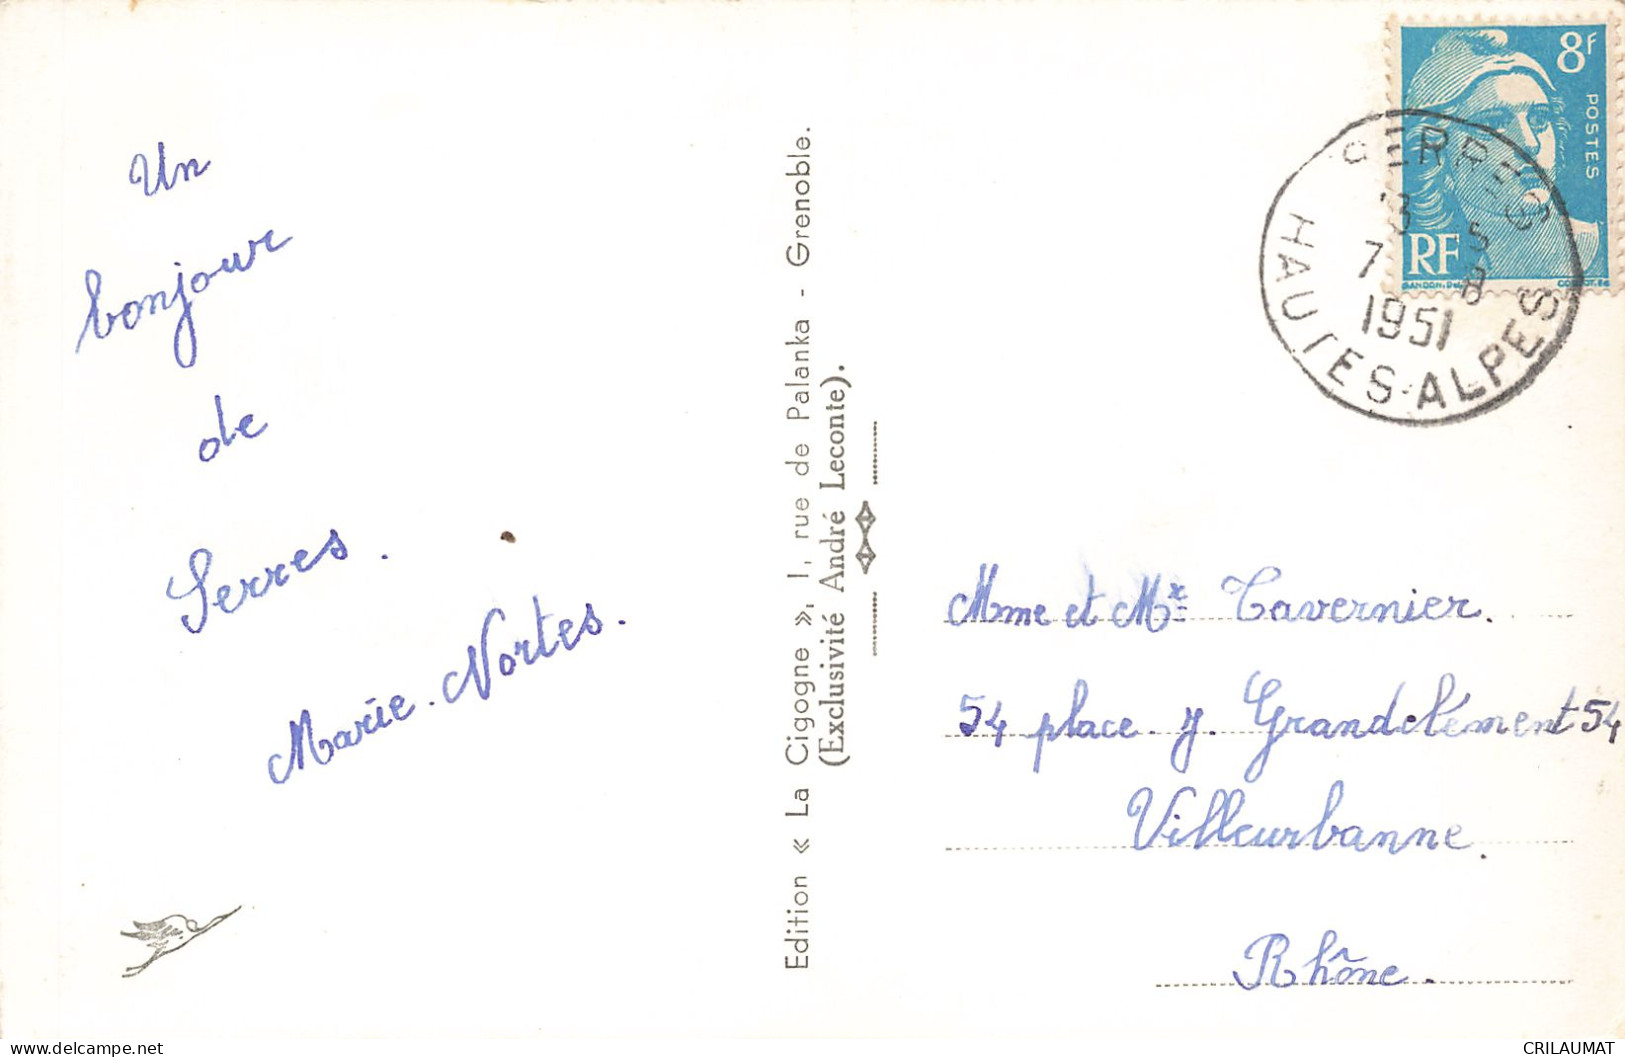 Un
bonjour
de
Serres.
Marie-Nortes.
Edition « La Cigogne », 1, rue de Palanka - Grenoble.
(Exclusivité André Leconte).
8F
POSTES
RF
GANDON. Del.
SERRES
7
1951
HAUTES-ALPES
Mme et Mr Tavernier.
54 place. J. Grandclément 54
Villeurbanne.
Rhône.
https://www.delcampe.net
CRILAUMAT